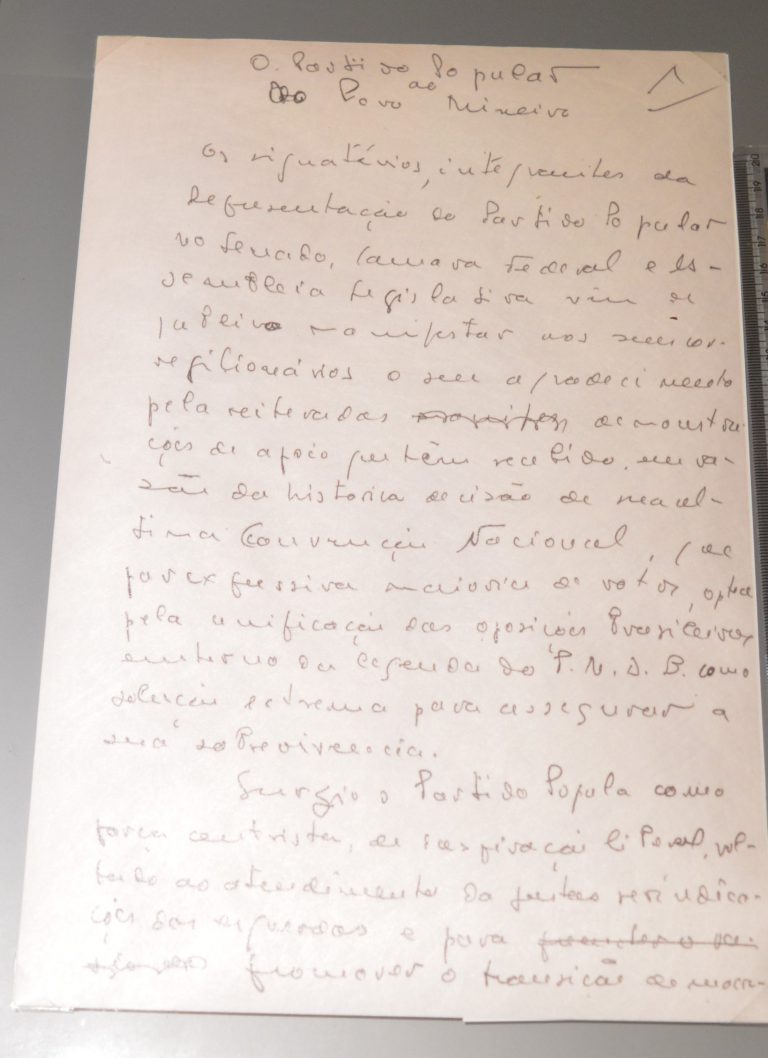 O. Partido Popular
ao
do Povo Mineiro
1
Os signatários, integrantes da
Representação do Partido Popular
no Senado, Camara Federal e As-
sembleia Legislativa vêm de
publico manifestar aos seus cor-
religionários o seu agradecimento
pela reiteradas demonstra-
ções de apoio que têm recebido, em ra-
zão da historica decisão de sua ul-
tima Convenção Nacional, que
por expressiva maioria de votos, optou
pela unificação das oposições Brasileiras
em torno da legenda do P. M. D. B. como
solução extrema para assegurar a
sua sobrevivencia.
Surgio o Partido Popula como
força centrista, de inspiração liberal, vol-
tado ao atendimento da justas reivindica-
ções das esquerdas e para
promover o transição democra-